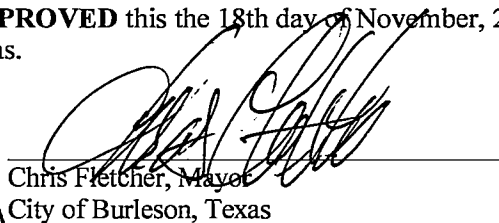 PROVED this the 18th day of November, 2
as.
Chris Fletcher, Mayor
City of Burleson, Texas